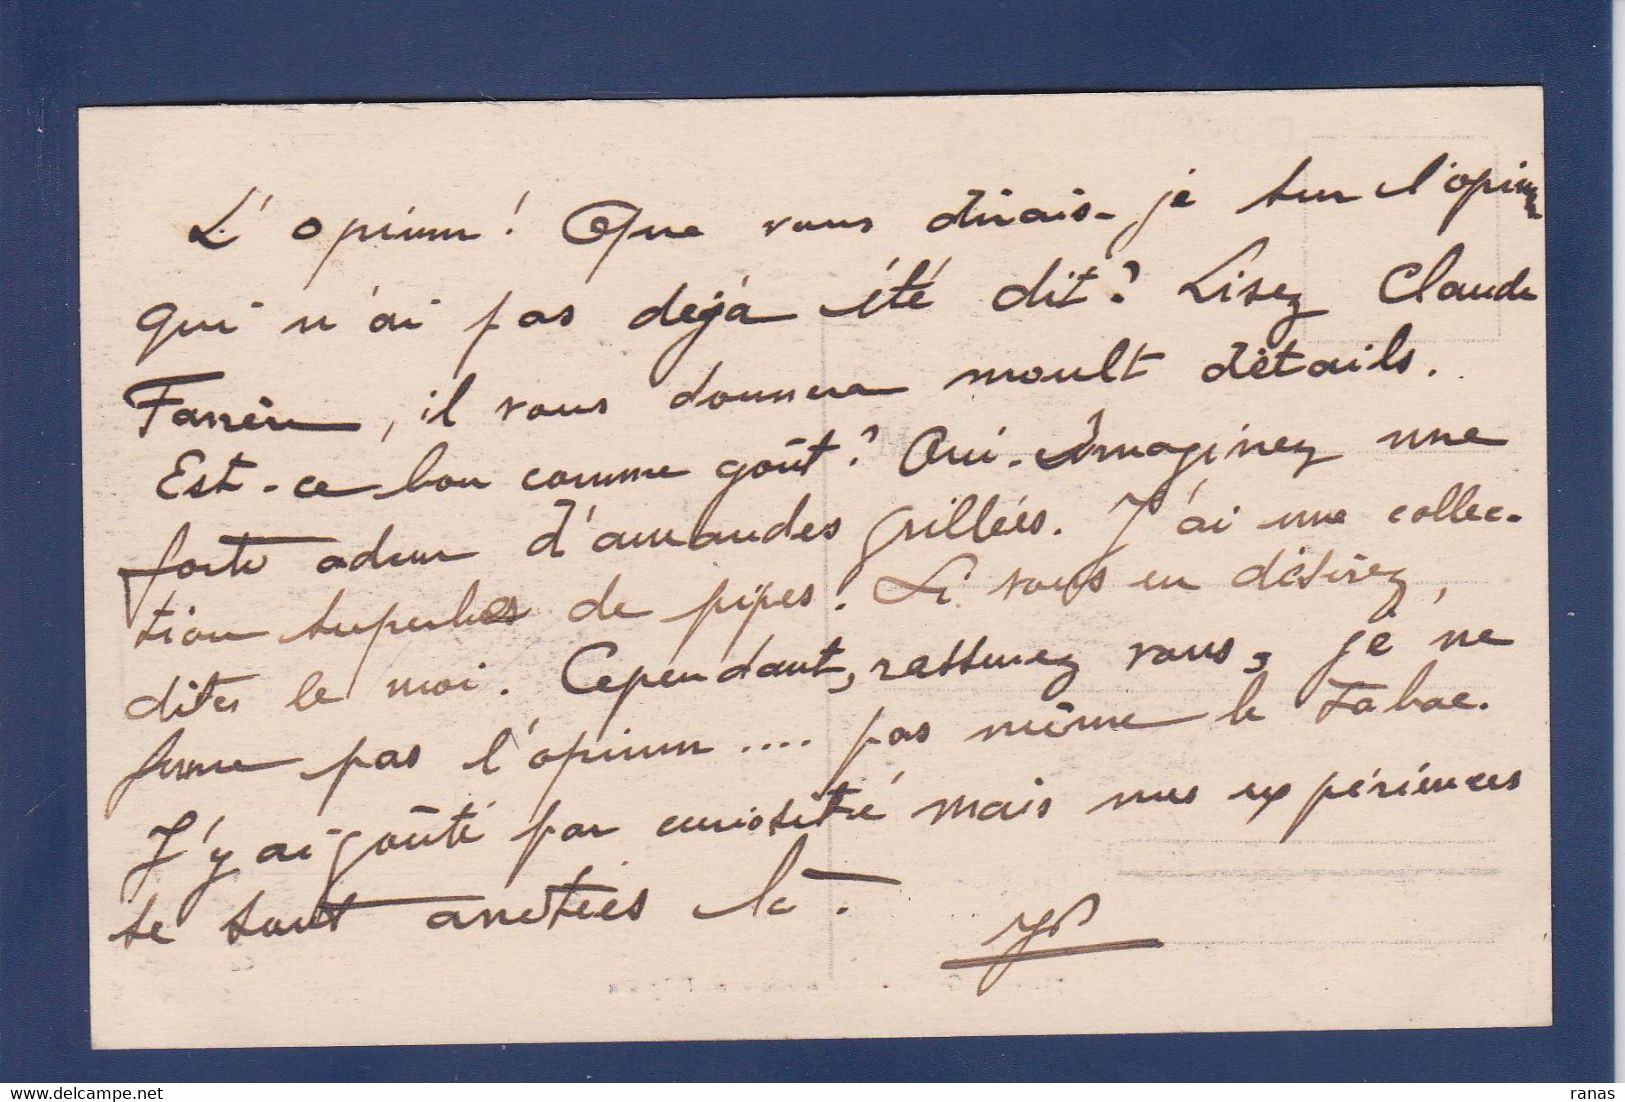 L'opium ! Que vous dirais-je sur l'opium
qui n'ai pas déjà été dit ? Lisez Claude
Farrère, il vous donnera moult détails.
Est-ce bon comme goût ? Oui. Imaginez une
forte odeur d'amandes grillées. J'ai une collec-
tion superbes de pipes. Si vous en désirez,
dites le moi. Cependant, rassurez vous, je ne
fume pas l'opium .... pas même le tabac.
J'y ai goûté par curiosité mais mes expériences
se sont arrêtées là.
ranas
delcampe.net